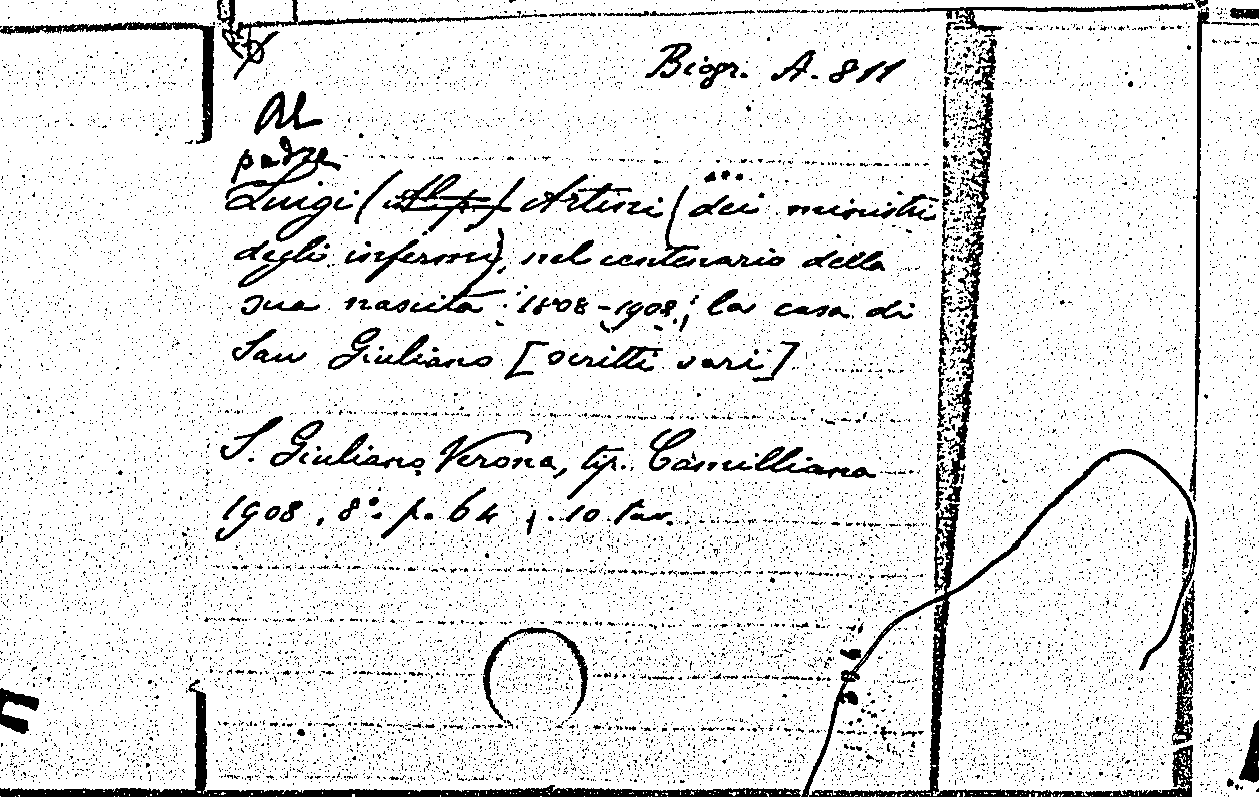 Biogr. A. 811
Al
padre
Luigi ( ) Artini (dei ministri
degli infermi), nel centenario della
sua nascita : 1808-1908; la casa di
San Giuliano [scritti vari]
S. Giuliano Verona, tip. Camilliana
1908, 8°. p. 64, . 10 tav.
906